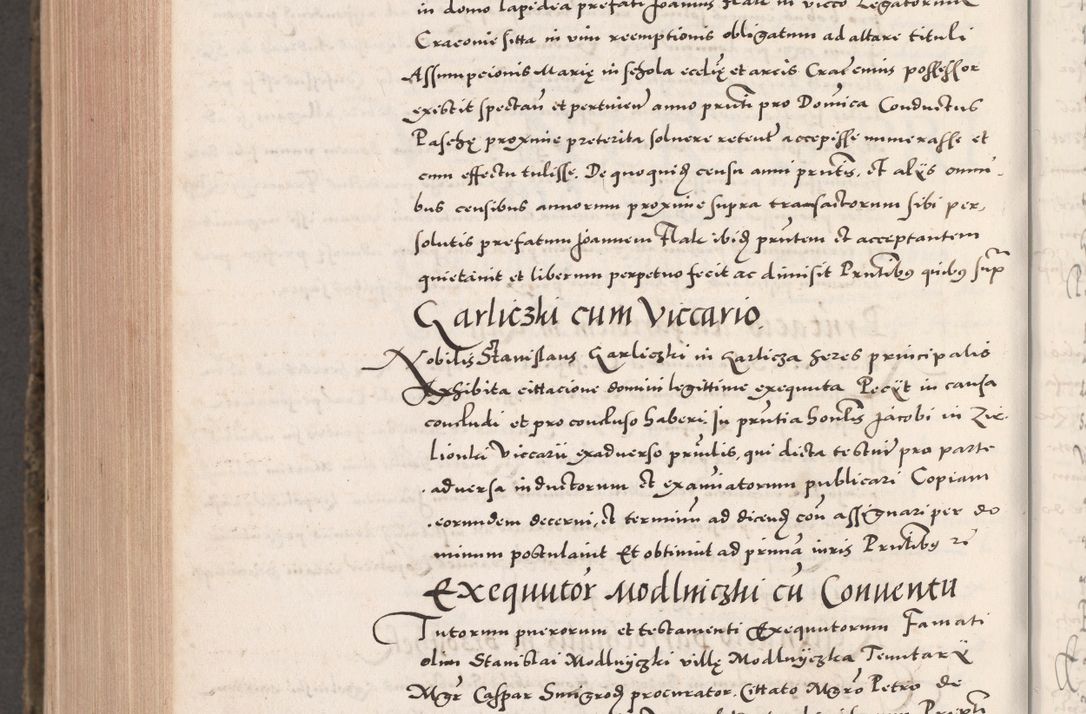 in domo lapidea prefati Joannis Flak in vicco Legatorum
Cracovie sitta in vim reemptionis obligatum ad altare tituli
Assumpcionis Marię in schola eccłię et arcis Cracoviens possessor
existit spectañ et pertineñ anno pñti pro Domica Conductus
Paschę proxime preterita solvere retenť accepisse numerasse et
cum effectu tulisse. De quoquidȝ censu anni pñtis, et alÿs omni-
bus censibus annorum proxime supra transactorum sibi per-
solutis prefatum Joannem Flak ibidȝ pñtem et acceptantem
quietavit et liberum perpetuo fecit ac dimisit Pñtibȝ quibȝ supᵃ
Garliczki cum Viccario.
Nobilis Stanislaus Garliczki in Garlicza heres principalis
Exhibita cittacione domini legittime exequuta Pecÿt in causa
concludi et pro concluso haberi. In pñtia honlis Jacobi in Zie-
lionki Viccarii exadverso pñcilis, qui dicta testiũ pro parte
adversa inductorum et examiatorum publicari Copiam
eorundem decerni, et terminũ ad dicendȝ coñ assignari per do
minum postulavit Et obtinuit ad primã iuris Pñtibȝ
Exequutor Modlniczki cũ Conventu
Tutorum puerorum et testamenti Exequutorum Famati
olim Stanislai Modlnyczki villę Modlnyczka Tenutarÿ
Mgr Caspar Smigrodȝ procurator. Cittato Mgro Petro de